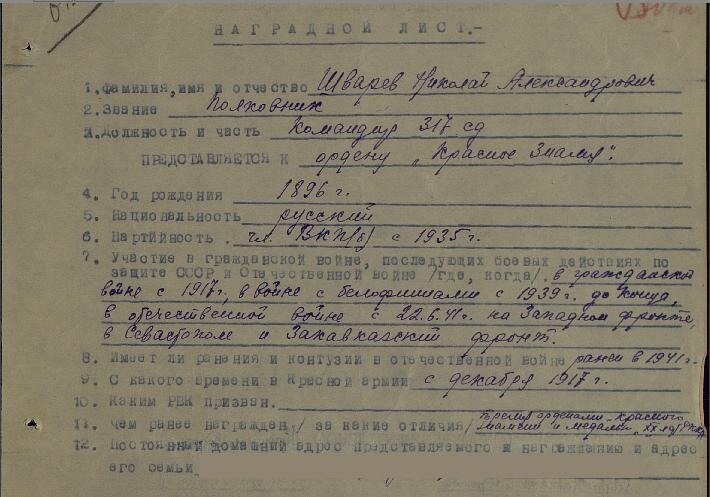 НАГРАДНОЙ ЛИСТ.-
1. Фамилия, имя и отчество Шварев Николай Александрович
2. Звание Полковник
3. Должность и часть Командир 317 сд
ПРЕДСТАВЛЯЕТСЯ К ордену "Красное Знамя".
4. Год рождения 1896 г.
5. Национальность русский
6. Партийность чл. ВКП(б) с 1935 г.
7. Участие в гражданской войне, последующих боевых действиях по
защите СССР и Отечественной войне /где, когда/. в гражданской
войне с 1917 г., в войне с белофиннами с 1939 г. до конца,
в отечественной войне с 22.6.41 г. на Западном фронте,
в Севастополе и Закавказский фронт.
8. Имеет ли ранения и контузии в отечественной войне ранен в 1941 г.
9. С какого времени в Красной армии с декабря 1917 г.
10. Каким РВК призван.
11. Чем ранее награжден/ за какие отличия/ тремя орденами "Красного
Знамени" и медалью "XX лет РККА"
12. Постоянный домашний адрес представляемого к награждению и адрес
его семьи